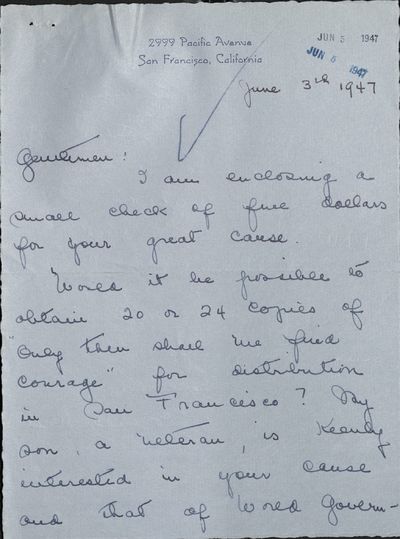 2999 Pacific Avenue
San Francisco, California
JUN 5 1947
JUN 5 1947
June 3rd 1947
Gentlemen:
I am enclosing a
small check of five dollars
for your great cause.
Would it be possible to
obtain 20 or 24 copies of
"Only then shall we find
courage" for distribution
in San Francisco? My
son, a veteran, is keenly
interested in your cause
and that of World Govern-